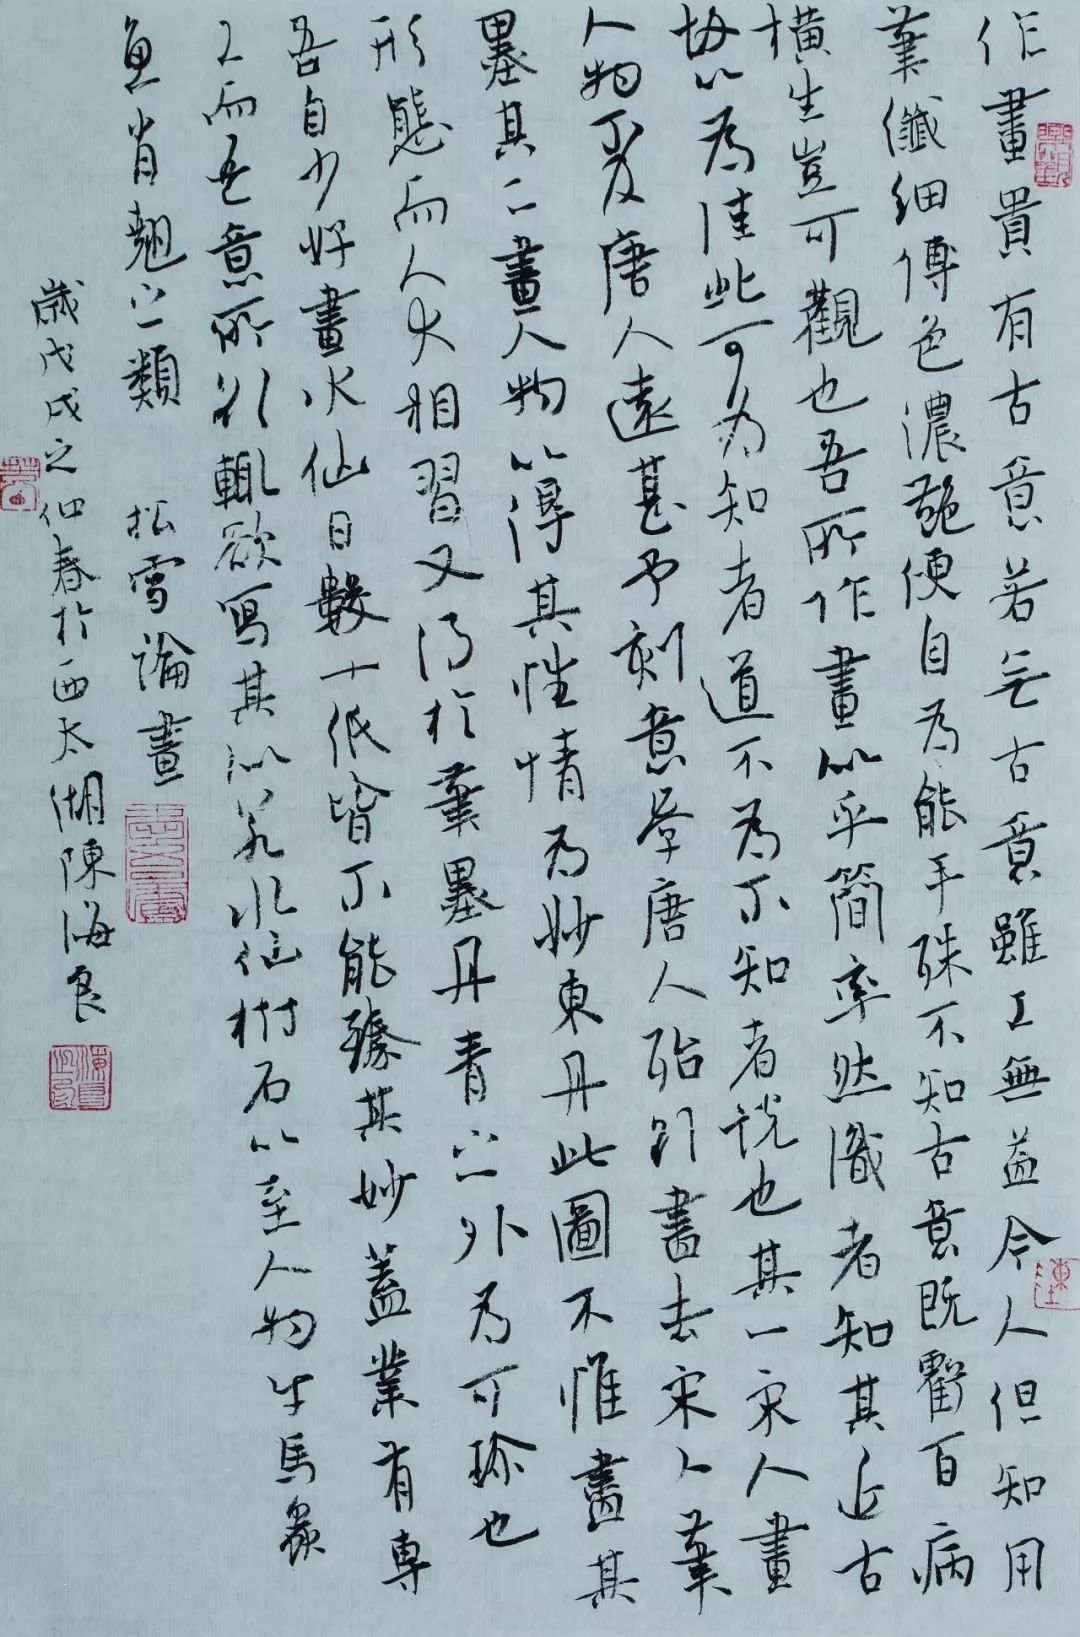 作畫貴有古意若无古意雖工無益今人但知用
筆纖細傅色濃艷便自為能手殊不知古意既虧百病
橫生豈可觀也吾所作畫似乎簡率然識者知其近古
故以為佳此可為知者道不為不知者說也其一宋人畫
人物不及唐人遠甚予刻意學唐人殆欲畫去宋人筆
墨其二畫人物以得其性情為妙東丹此圖不惟畫其
形態而人犬相習又得於筆墨丹青之外為可珍也
吾自少好畫水仙日數十紙皆不能臻其妙蓋業有專
工而吾意所寓輒欲寫其似若水仙樹石以至人物牛馬蟲
魚肖翹之類 松雪論畫
歲戊戌之仲春於西太湖陳海良